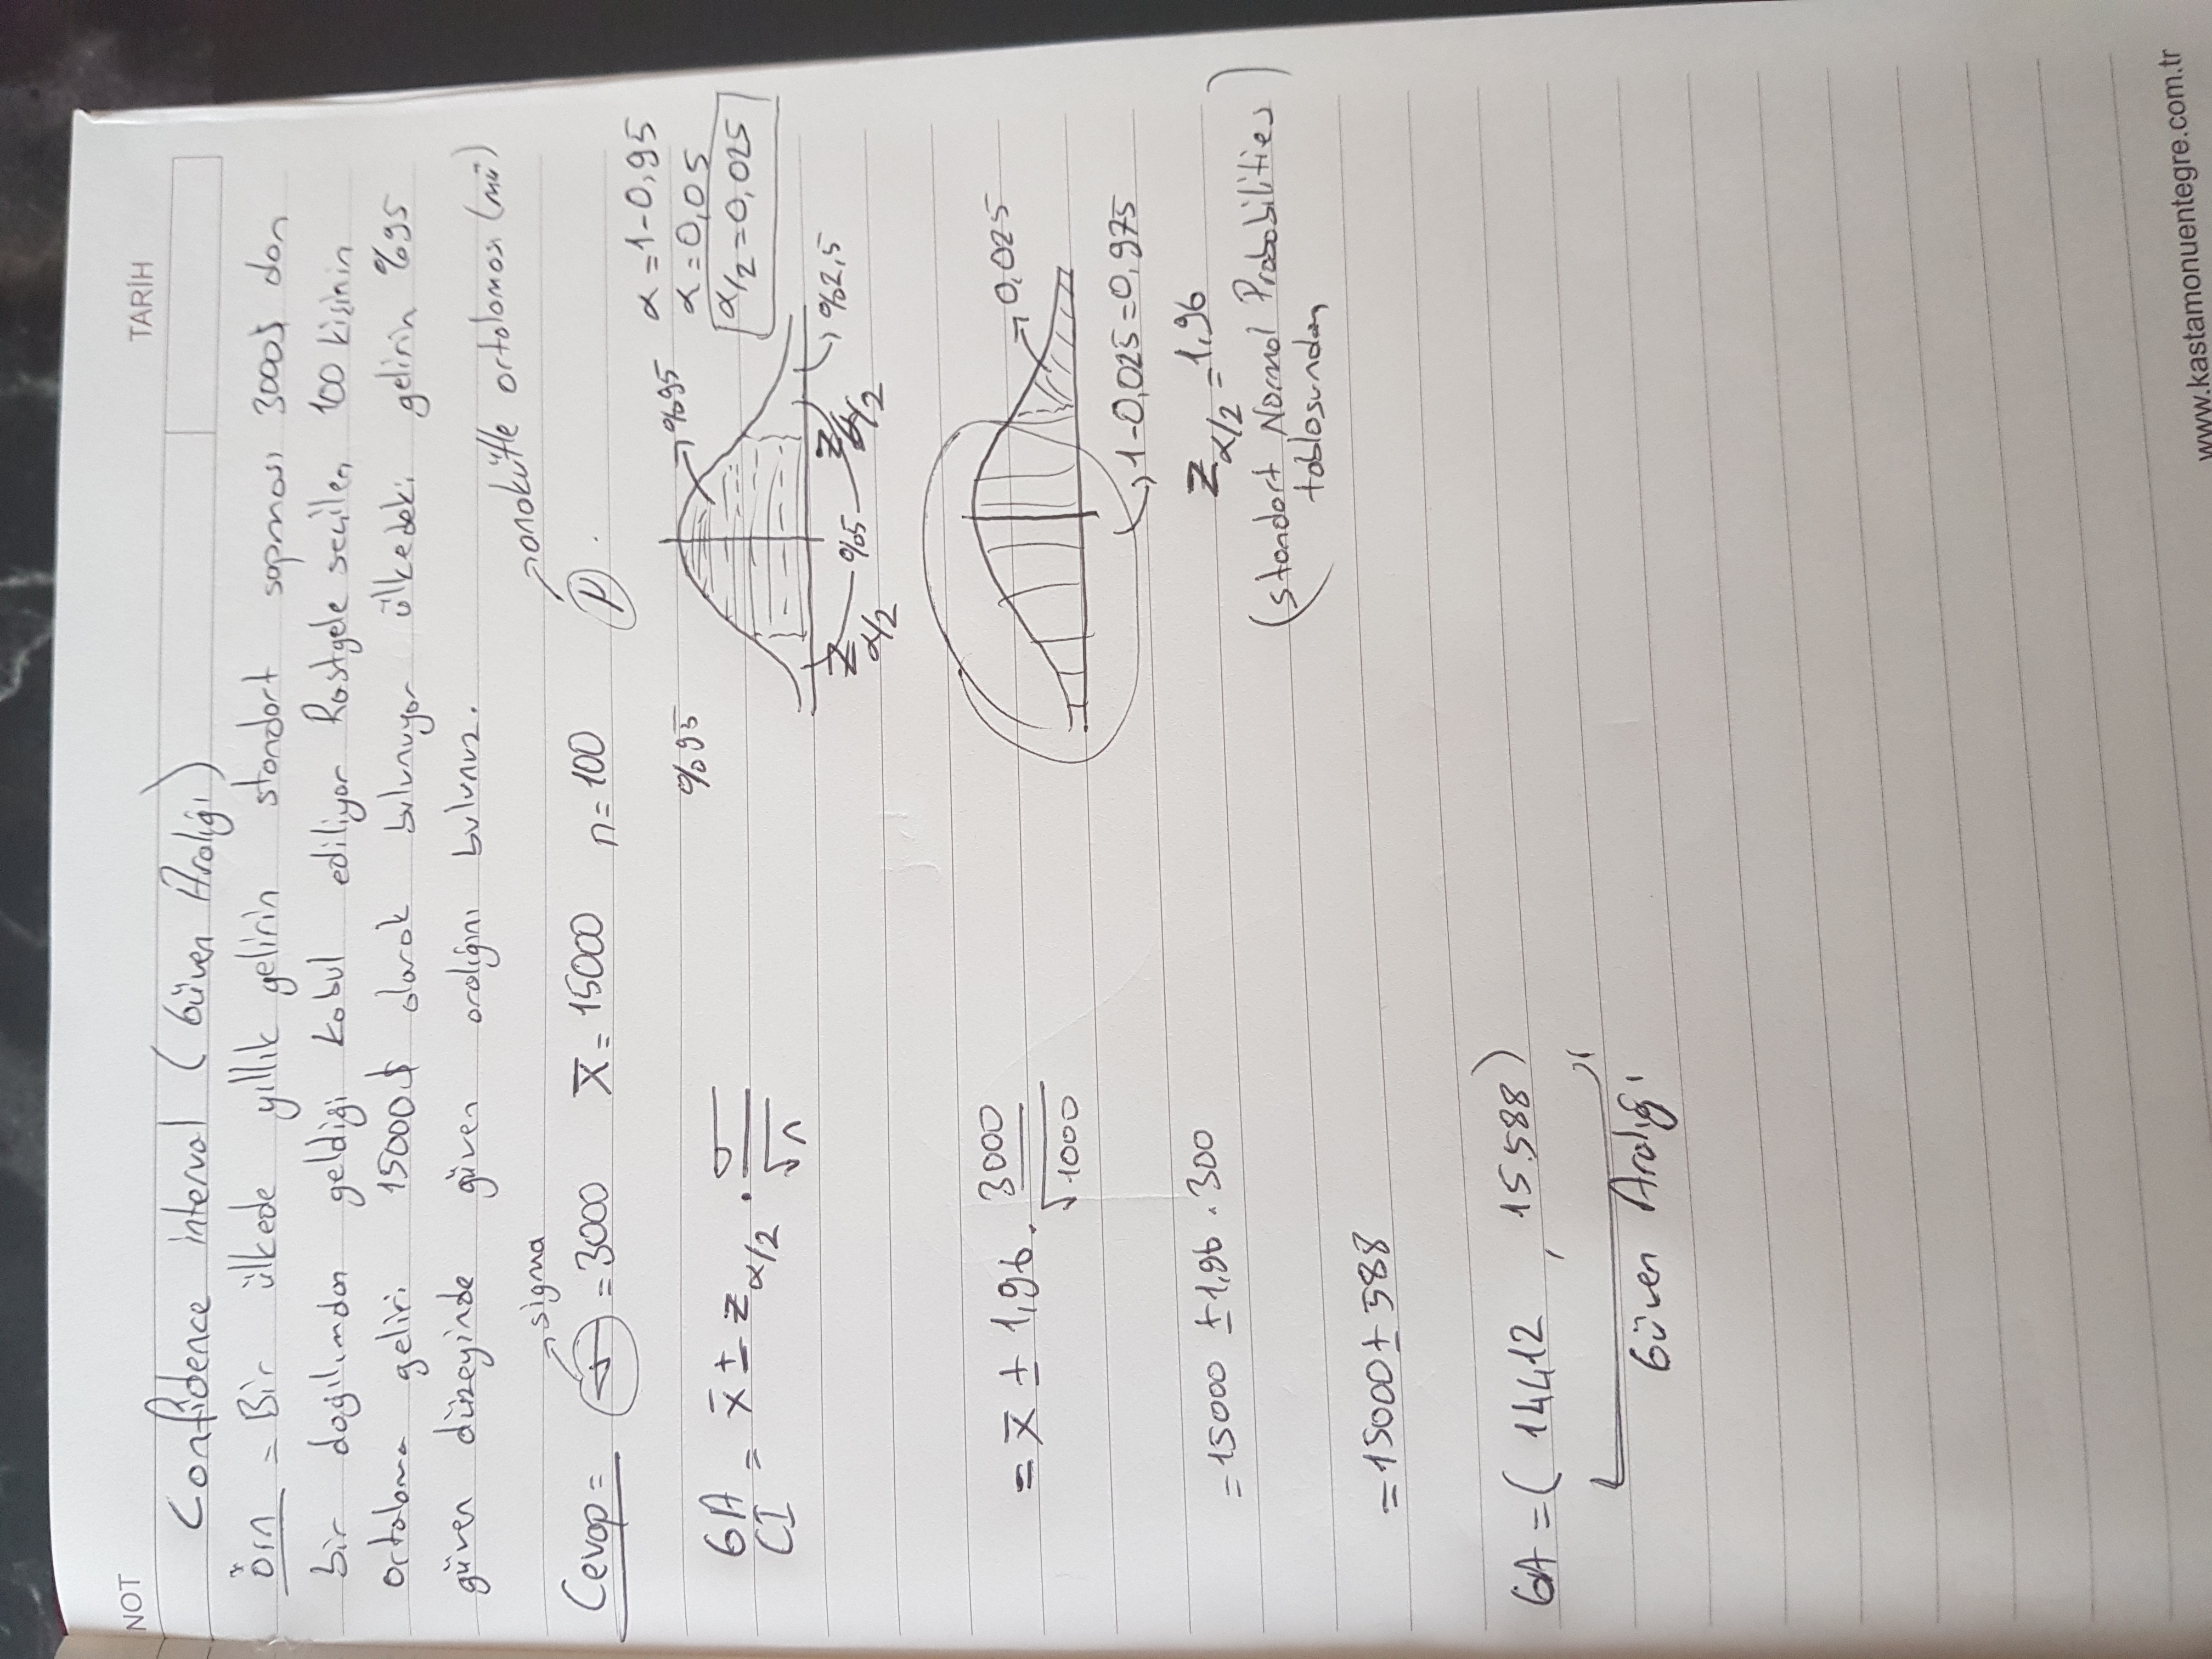 NOT
TARİH
Confidence interval (Güven Aralığı)
Örn = Bir ülkede yıllık gelirin standart sapması 3000$ dan
bir dağılımdan geldiği kabul ediliyor Rastgele seçilen 100 kişinin
ortalama geliri 15000$ olarak bulunuyor ülkedeki gelirin %95
güven düzeyinde güven aralığını bulunuz.
sigma
anakütle ortalaması (mü)
Cevap = σ = 3000 x̄ = 15000 n = 100 μ
%95
%95
α = 1-0,95
α = 0,05
α/2 = 0,025
GA
CI = x̄ ± z α/2 . σ/√n
Z α/2 %5 Z α/2 %2,5
= x̄ ± 1,96 . 3000/√1000
0,025
1-0,025=0,975
= 15000 ±1,96 . 300
Z α/2 = 1,96
(standart Normal Probabilities
tablosundan)
= 15000 ± 588
GA = ( 14.412 , 15.588 )
Güven Aralığı
www.kastamonuentegre.com.tr